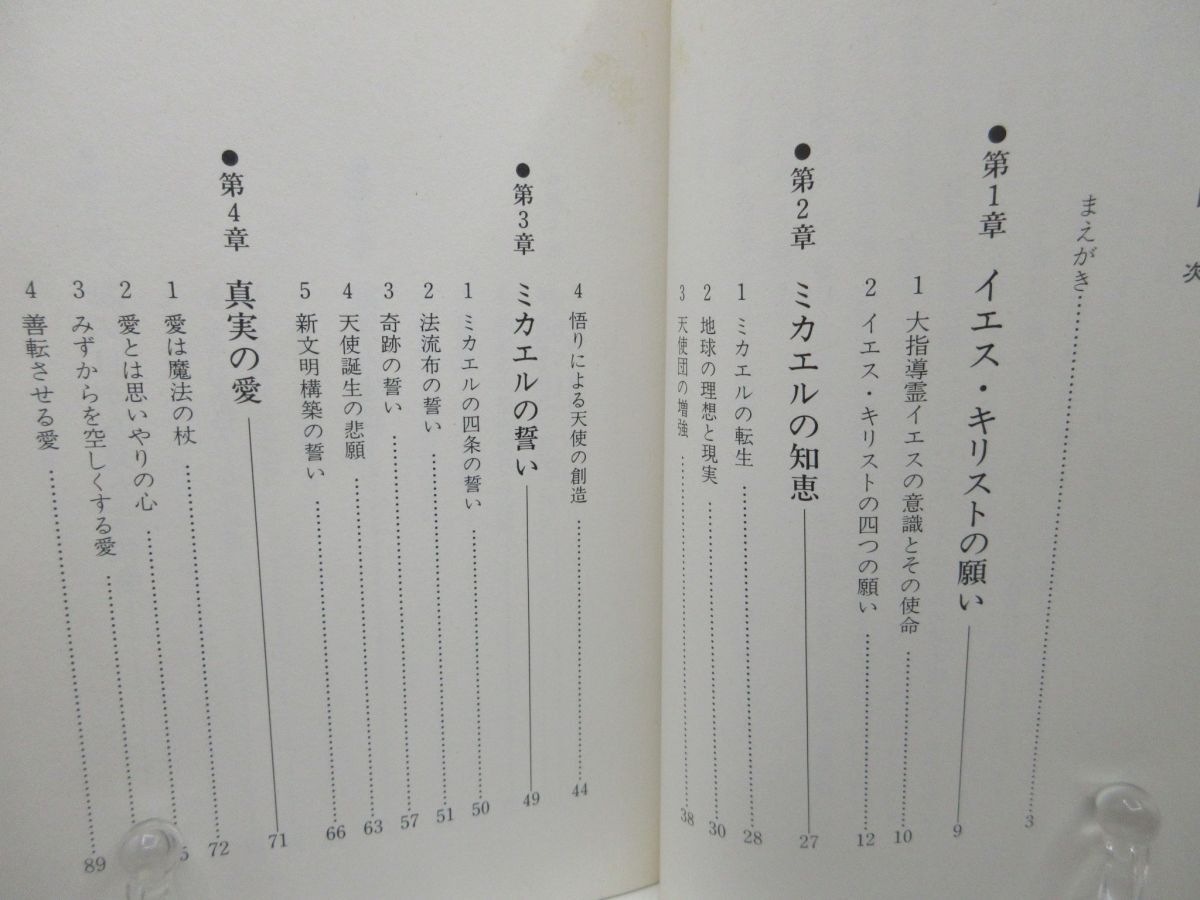 次
まえがき 3
●第1章 イエス・キリストの願い 9
1 大指導霊イエスの意識とその使命 10
2 イエス・キリストの四つの願い 12
●第2章 ミカエルの知恵 27
1 ミカエルの転生 28
2 地球の理想と現実 30
3 天使団の増強 38
4 悟りによる天使の創造 44
●第3章 ミカエルの誓い 49
1 ミカエルの四条の誓い 50
2 法流布の誓い 51
3 奇跡の誓い 57
4 天使誕生の悲願 63
5 新文明構築の誓い 66
●第4章 真実の愛 71
1 愛は魔法の杖 72
2 愛とは思いやりの心
3 みずからを空しくする愛
4 善転させる愛 89